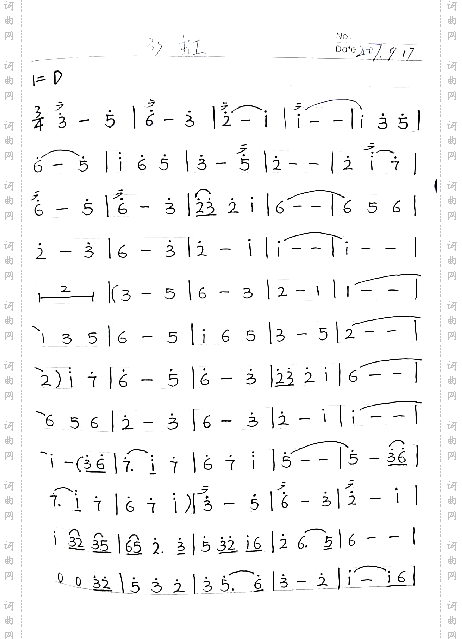 No.
Date 27. 9. 17
1= D
3/4 3 - 5 | 6 - 3 | 2 - i | i - - | i 3 5 |
6 - 5 | i 6 5 | 3 - 5 | 2 - - | 2 i 7 |
6 - 5 | 6 - 3 | 23 2 i | 6 - - | 6 5 6 |
2 - 3 | 6 - 3 | 2 - i | i - - | i - - |
2 | (3 - 5 | 6 - 3 | 2 - 1 | 1 - - |
1 3 5 | 6 - 5 | i 6 5 | 3 - 5 | 2 - - |
2) i 7 | 6 - 5 | 6 - 3 | 23 2 i | 6 - - |
6 5 6 | 2 - 3 | 6 - 3 | 2 - i | i - - |
i - (36 | 7. i 7 | 6 7 i | 5 - - | 5 - 36 |
7. i 7 | 6 7 i) | 3 - 5 | 6 - 3 | 2 - i |
i 32 35 | 65 2. 3 | 5 32 i6 | 2 6. 5 | 6 - - |
0 0 32 | 5 3 2 | 3 5. 6 | 3 - 2 | i - i6 |